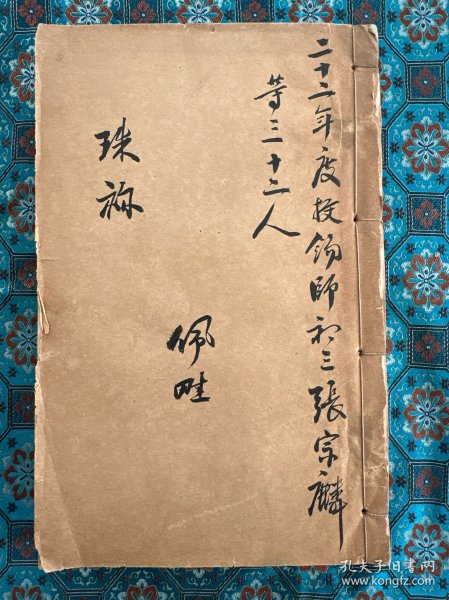 二十二年度授錫師初三張宗麟
等三十二人
珠
佩
孔夫子旧书网
www.kongfz.com